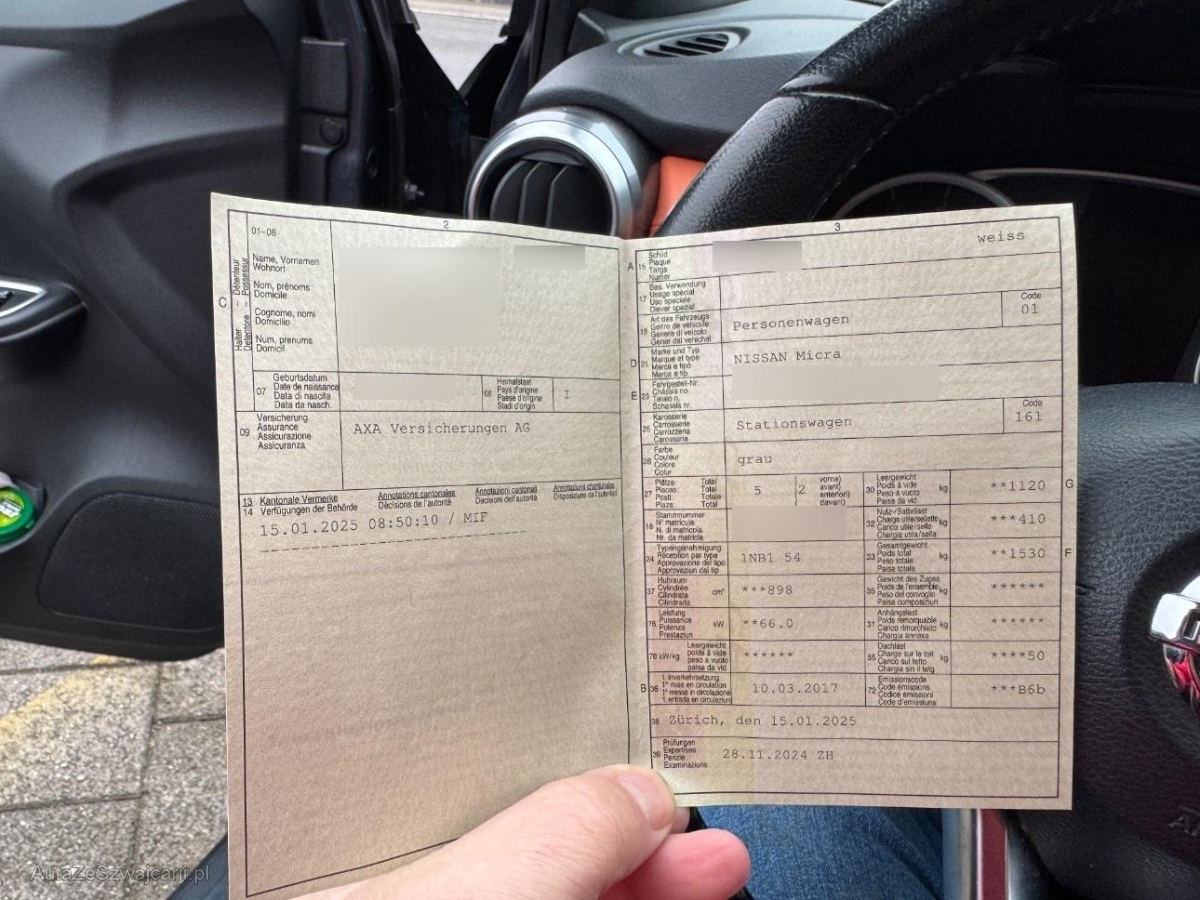 2
01-06
C
Halter
Détenteur
Detentore
Possessur
Name, Vornamen
Wohnort
Nom, prénoms
Domicile
Cognome, nomi
Domicilio
Num, prenums
Domicil
07
Geburtsdatum
Date de naissance
Data di nascita
Data da nasch.
08
Heimatstaat
Pays d'origine
Paese d'origine
Stadi d'origin
I
09
Versicherung
Assurance
Assicurazione
Assicuranza
AXA Versicherungen AG
13 Kantonale Vermerke
14 Verfügungen der Behörde
Annotations cantonales
Décisions de l'autorité
Annotazioni cantonali
Decisioni dell'autorità
Annotaziuns chantunalas
Disposiziuns da l'autoritad
15.01.2025 08:50:10 / MIF
3
A 15
Schild
Plaque
Targa
Numer
weiss
17
Bes. Verwendung
Usage spécial
Uso speciale
Diever spezial
19
Art des Fahrzeugs
Genre de véhicule
Genere di veicolo
Gener dal vehichel
Personenwagen
Code
01
D 21
Marke und Typ
Marque et type
Marca e tipo
Marca e tip
NISSAN Micra
E 23
Fahrgestell-Nr.
Châssis no
Telaio n.
Schassis nr.
25
Karosserie
Carrosserie
Carrozzeria
Carossaria
Stationswagen
Code
161
26
Farbe
Couleur
Colore
Colur
grau
27
Plätze Total
Places Total
Posti Totale
Plazs Total
5
2
vorne)
avant)
anteriori)
davant)
30
Leergewicht
Poids à vide
Peso a vuoto
Paisa da vid
kg
**1120
G
18
Stammnummer
N° matricule
N. di matricola
Nr. da matricla
32
Nutz-/Sattellast
Charge utile/sellette
Carico utile/sella
Chargia utila/sella
kg
***410
24
Typengenehmigung
Réception par type
Approvazione del tipo
Approvaziun dal tip
1NB1 54
33
Gesamtgewicht
Poids total
Peso totale
Paisa totala
kg
**1530
F
37
Hubraum
Cylindrée
Cilindrata
Cilindrada
cm³
***898
35
Gewicht des Zuges
Poids de l'ensemble
Peso del convoglio
Paisa cumposiziun
kg
******
76
Leistung
Puissance
Potenza
Prestaziun
kW
**66.0
31
Anhängelast
Poids remorquable
Carico rimorchiato
Chargia annexa
kg
******
78 kW/kg
Leergewicht
poids à vide
peso a vuoto
paisa da vid
******
55
Dachlast
Charge sur le toit
Carico sul tetto
Chargia sin il tetg
kg
****50
B 36
1. Inverkehrsetzung
1re mise en circulation
1a messa in circolazione
1. entrada en circulaziun
10.03.2017
72
Emissionscode
Code émissions
Codice emissioni
Code d'emissiuns
***B6b
38
Zürich, den 15.01.2025
39
Prüfungen
Expertises
Perizie
Examinaziuns
28.11.2024 ZH
AutaZeSzwajcarii.pl